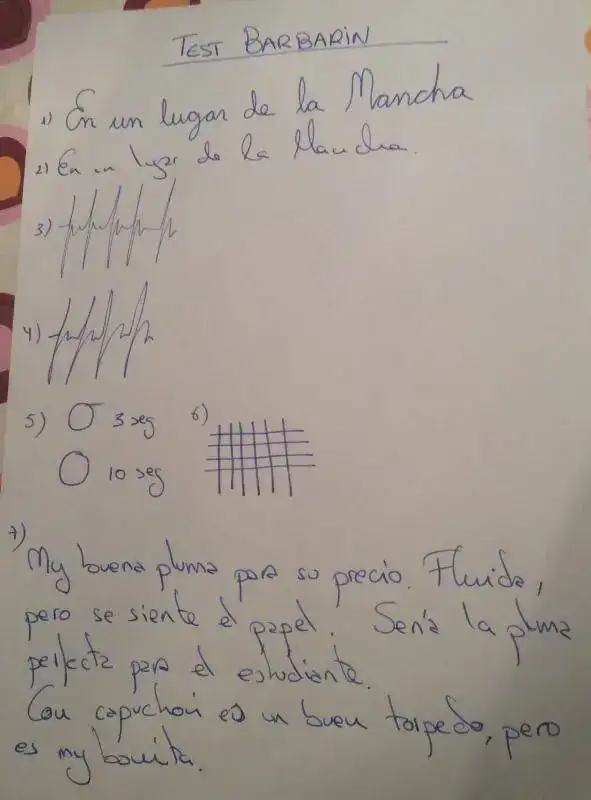 TEST BARBARIN
1) En un lugar de la Mancha
2) En un lugar de la Mancha.
3)
4)
5) 3 seg 6)
10 seg
7)
My buena pluma para su precio. Fluida,
pero se siente el papel. Sería la pluma
perfecta para el estudiante.
Con capuchón es un buen torpedo, pero
es my bonita.